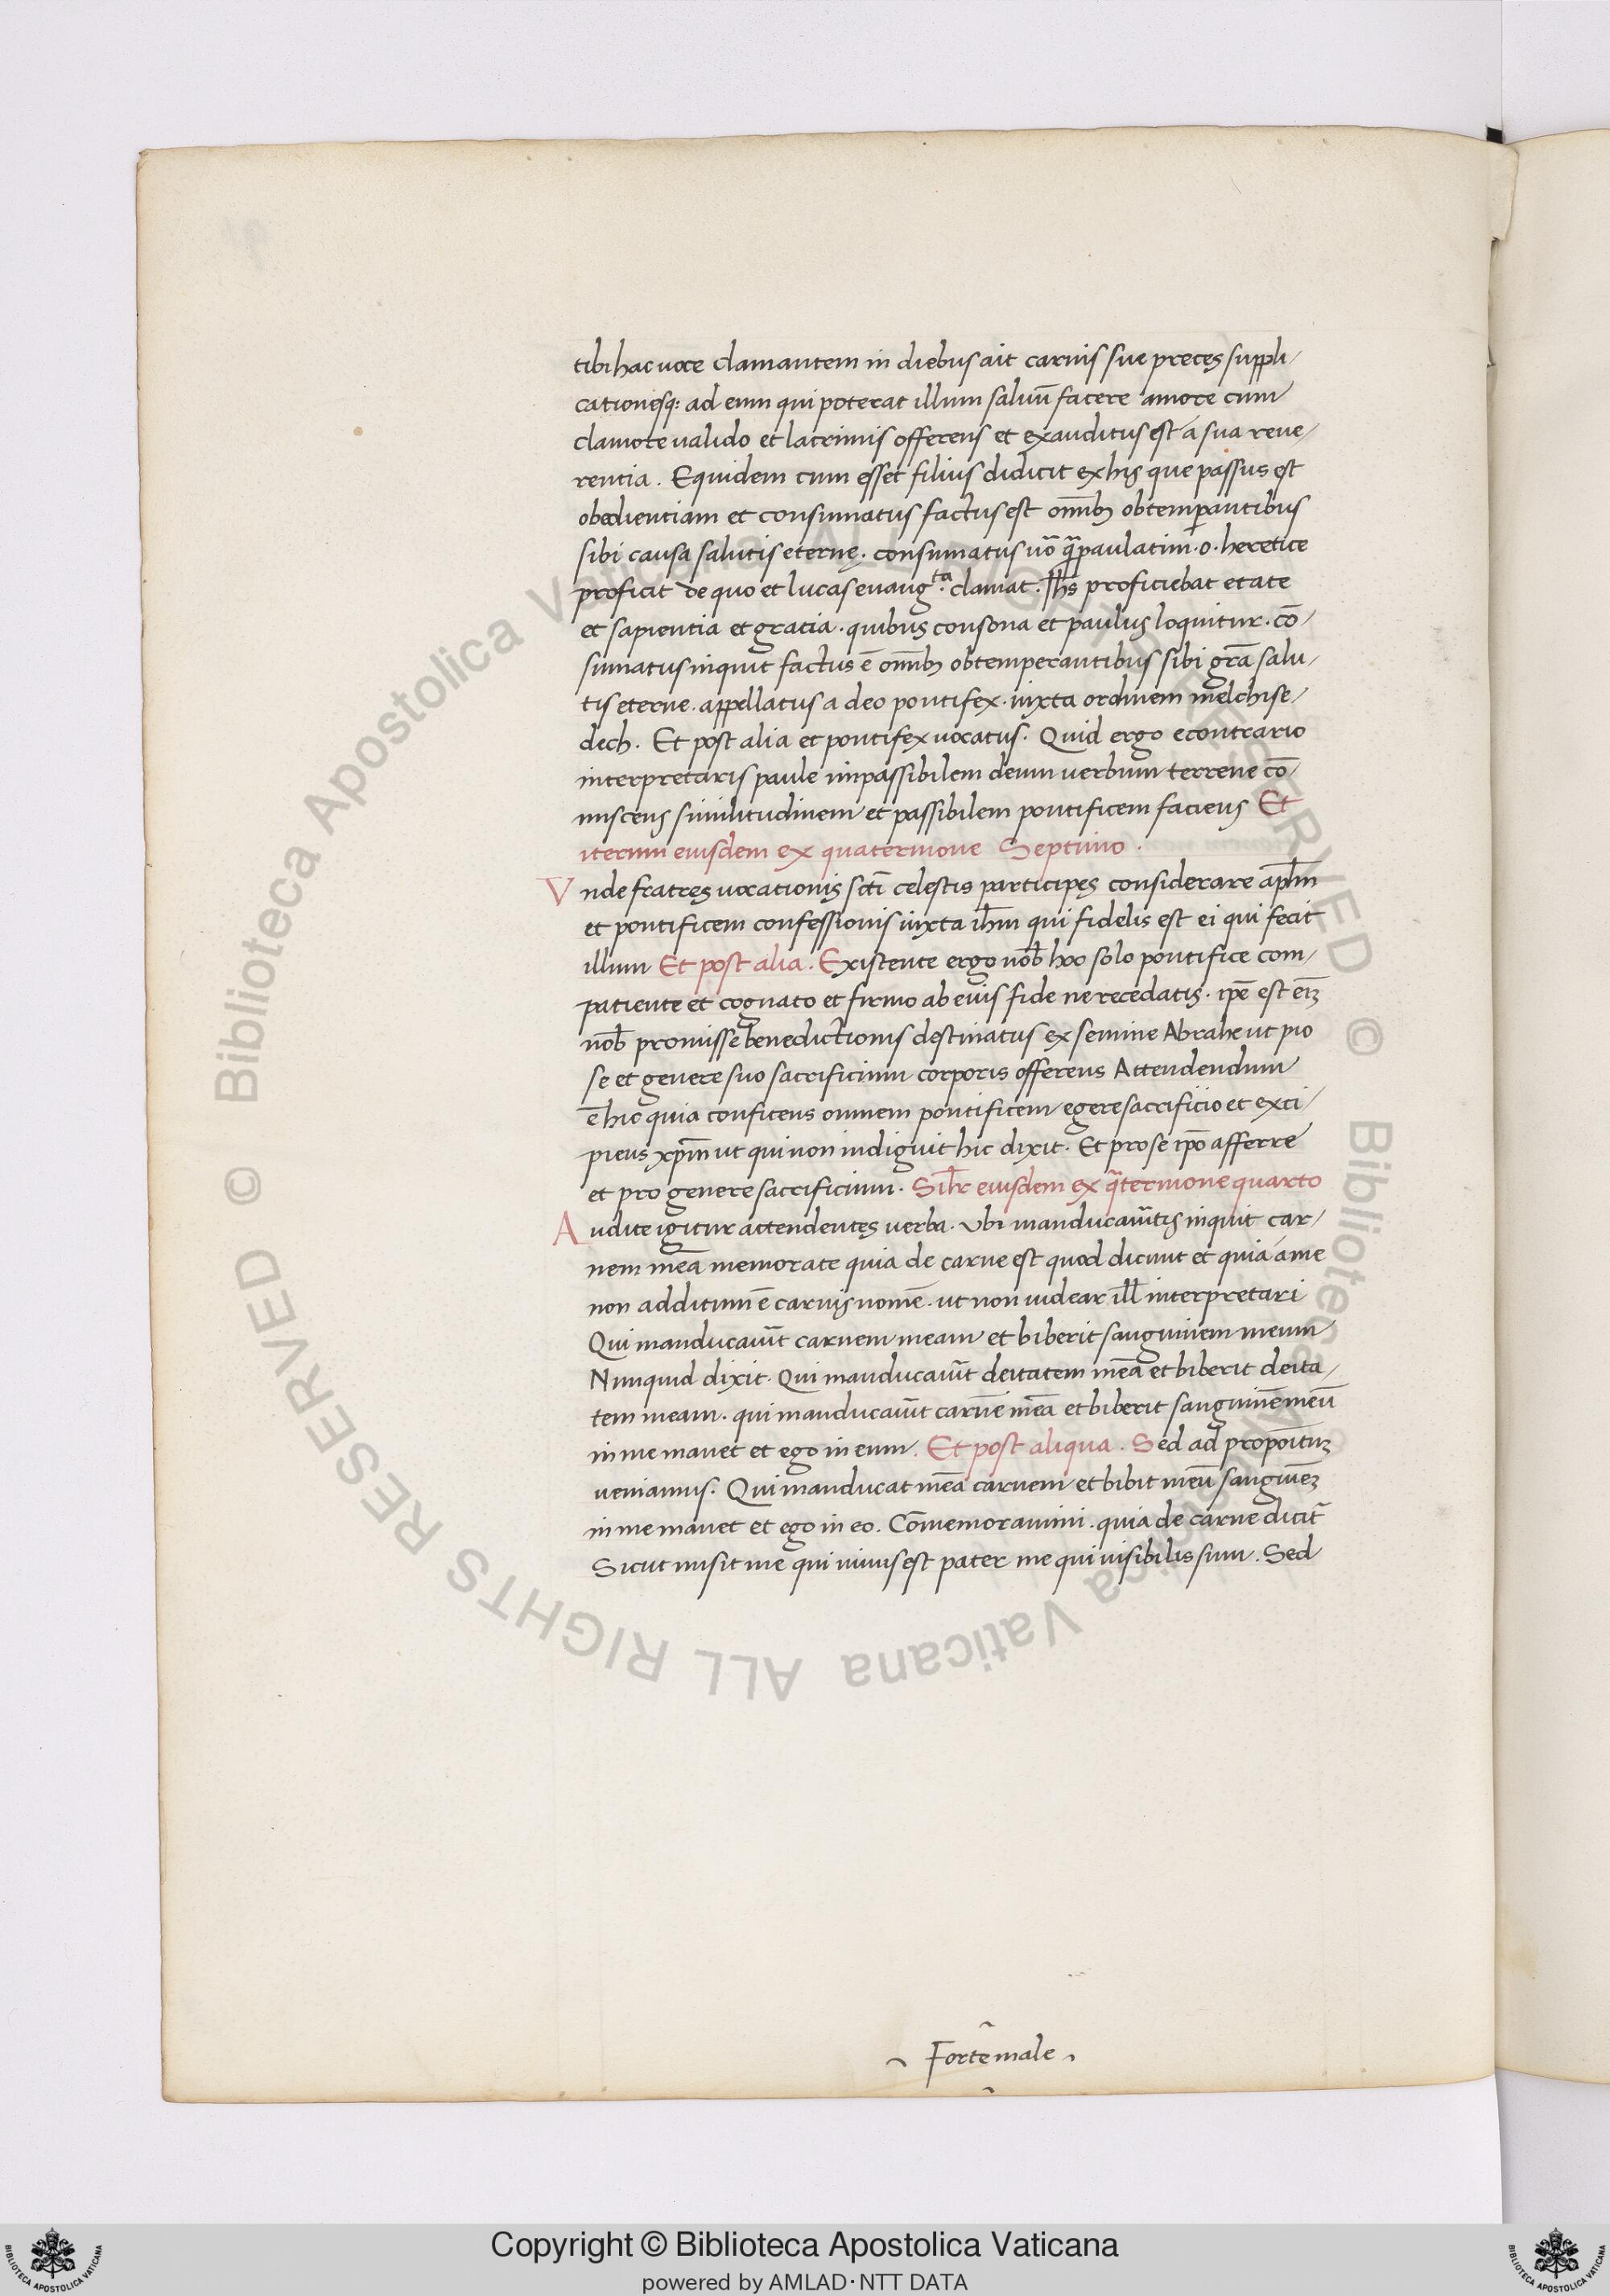 tibi hac uoce clamantem in diebus ait carnis sue preces suppli/
cationesq: ad eum qui poterat illum saluū facere amore cum
clamore ualido et lacrimis offerens et exauditus est á sua reue/
rentia. Equidem cum esset filius didicit ex his que passus est
obedientiam et consumatus factus est om̄ib obtemꝑantibus
sibi causa salutis eternę. consumatus uō paulatim. o. heretice
proficit de quo et lucas euang.ta clamat: Jh̄s proficiebat etate
et sapientia et gratia. quibus consona et paulus loquitur. cō/
sumatus inquit factus ē om̄ib obtemperantibus sibi grā salu/
tis eterne. appellatus a deo pontifex. iuxta ordinem melchise/
dech. Et post alia et pontifex uocatus. Quid ergo econtrario
interpretaris paule inpassibilem deum uerbum terrene cō/
miscens similitudinem et passibilem pontificem faciens Et
iterum eiusdem ex quaternione Septimo.
Vnde fratres uocationis sctī celestis participes considerare apl̄m
et pontificem confessionis iuxta ih̄m qui fidelis est ei qui fecit
illum Et post alia. Existente ergo nob̄ hoc solo pontifice com/
patiente et cognato et firmo ab eius fide ne recedatis. ip̄e est eiꝫ
nob̄ promisse benedictionis destinatus ex semine Abrahe ut pio
se et genere suo sacrificium corporis offerens Attendendum
ē hic quia confitens omnem pontificem egere sacrificio et exci/
piens xp̄m ut qui non indiguit hic dixit. Et pro se ip̄o afferre
et pro genere sacrificium. Sil̄r eiusdem ex q̄ternione quarto
Audite igitur attendentes uerba. Vbi manducauūtis inquit car/
nem meā memorate quia de carne est quod dicunt et quia á me
non additum ē carnis nomē. ut non uidear ill̄ interpretari
Qui manducauīt carnem meam et biberit sanguinem meum
Nunquid dixit. Qui manducauīt deitatem meā et biberit deita/
tem meam. qui manducauīt carnē meā et biberit sanguinē meū
in me manet et ego in eum. Et post aliqua. Sed ad propoītuꝫ
ueniamus. Qui manducat meā carnem et bibit meū sanguīeꝫ
in me manet et ego in eo. Cōmemoramini. quia de carne dicit̄
Sicut misit me qui uiuus est pater me qui uisibilis sum. Sed
Forte male
Copyright © Biblioteca Apostolica Vaticana
powered by AMLAD·NTT DATA
© Biblioteca Apostolica Vaticana ALL RIGHTS RESERVED © Biblioteca Apostolica Vaticana ALL RIGHTS RESERVED
BIBLIOTECA APOSTOLICA VATICANA
BIBLIOTECA APOSTOLICA VATICANA